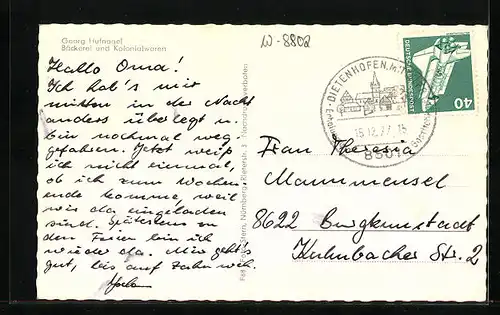 Georg Hufnagel
Bäckerei und Kolonialwaren
W-8802
Hallo Oma!
Ich hab's mir
mitten in der Nacht
anders überlegt u.
bin nochmal weg-
gefahren. Jetzt weiß
ich nicht einmal,
ob ich zum Wochen-
ende komme, weil
wir da eingeladen
sind. Spätestens zu
den Ferien bin ich
wieder da. Mir geht's
gut, bis auf Zahnweh.
Nürnberg, Rieterstr. 3
DIETENHOFEN
15.12.77
8501
DEUTSCHE BUNDESPOST
40
Frau Theresia
Mammensel
8622 Burgkunstadt
Kulmbacher Str. 2